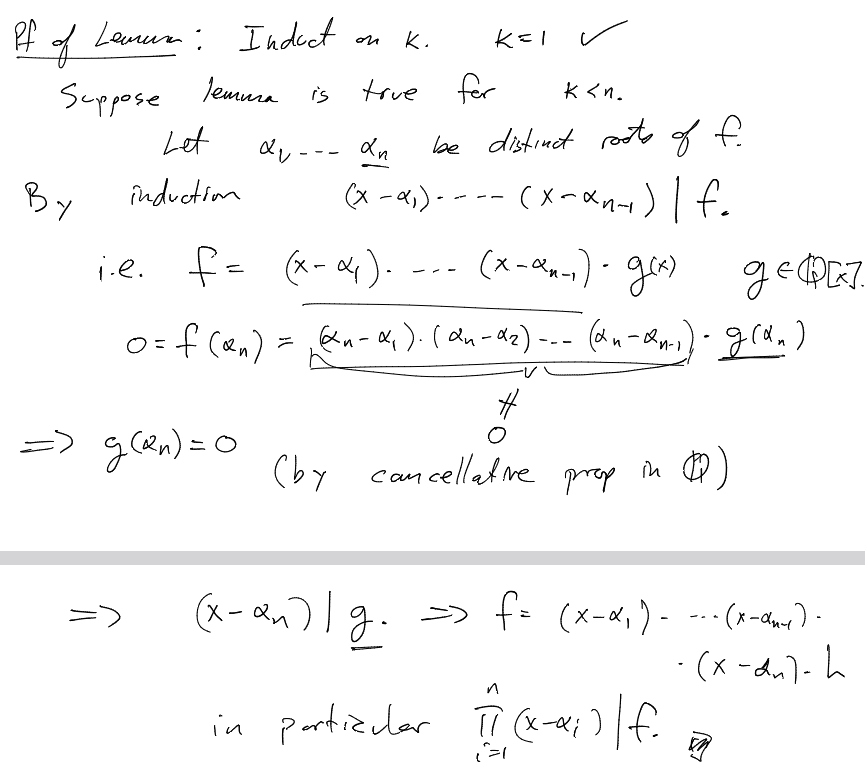 Pf of Lemma: Induct on k. k=1 ✓
Suppose lemma is true for k<n.
Let α₁, ---- αₙ be distinct roots of f.
By induction (x-α₁)·---- (x-αₙ₋₁) | f.
i.e. f = (x-α₁)· ---- (x-αₙ₋₁)· g(x) g∈ℚ[x].
0 = f(αₙ) = (αₙ-α₁)·(αₙ-α₂) --- (αₙ-αₙ₋₁)· g(αₙ)
≠
0
=> g(αₙ)=0 (by cancellative prop in ℚ)
=> (x-αₙ) | g. => f = (x-α₁)- ---·(x-αₙ₋₁)·
·(x-αₙ)·h
in particular ∏ᵢ₌₁ⁿ (x-αᵢ) | f.